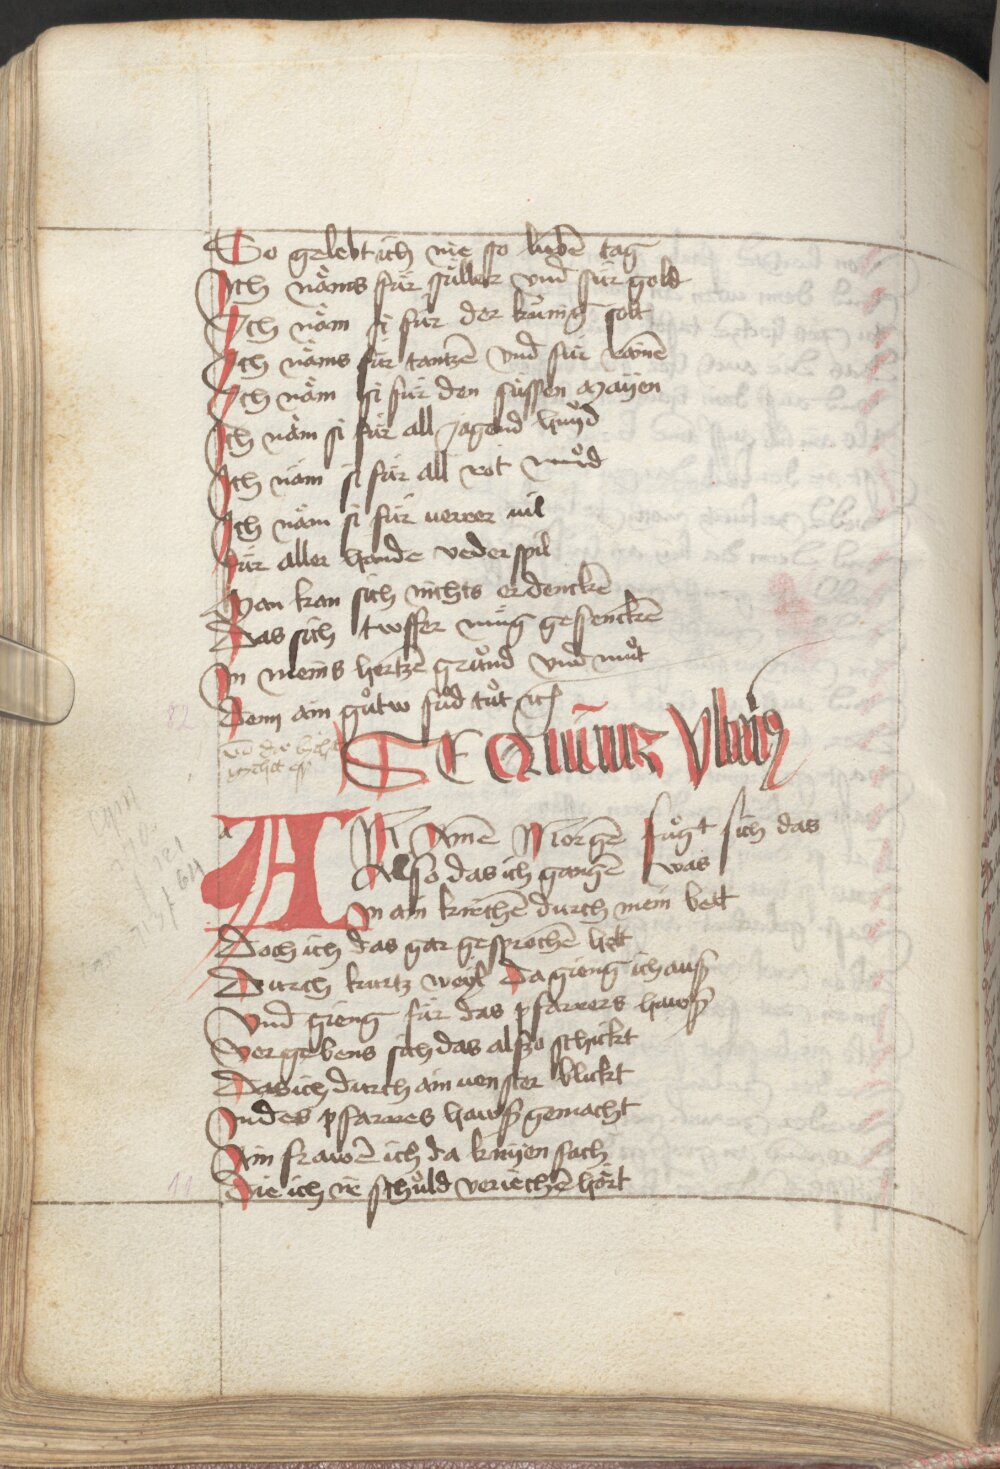 So gelebt ich nie so liebē tag
Ich näms für silber vnd für gold
Ich näm si für der küning solt
Ich näms für tantzē vnd für raiē
Ich näm si für den süssen mayen
Ich näm si für all jagend hund
Ich näm si für all rot mund
Ich näm si für verrer vil
Für aller hande veder spil
Man kan sich nichts erdenckē
Das sich tyeffer müg gesenckē
In meins hertzē grund vnd mut
Denn ain gutw
82
SEQUITUR
AIN morgē fugt sich das
Also das ich gangē was
In ain kirchē durch mein bett
Doch ich das gar gesprochē hett
Durch kurtz weyl da gieng ich auß
Vnd gieng für das pfarrers hawß
Vergebens sich das alßo schickt
Das ich durch ain venster blickt
In des pfarrers hawß gemacht
Ain frawē ich da knyen sach
Die ich ir schuld veriechē hört